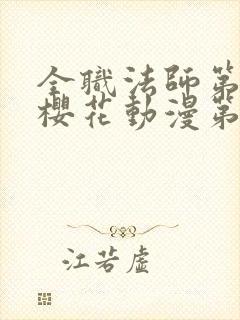 全職法師第
櫻花動漫第
江若虛